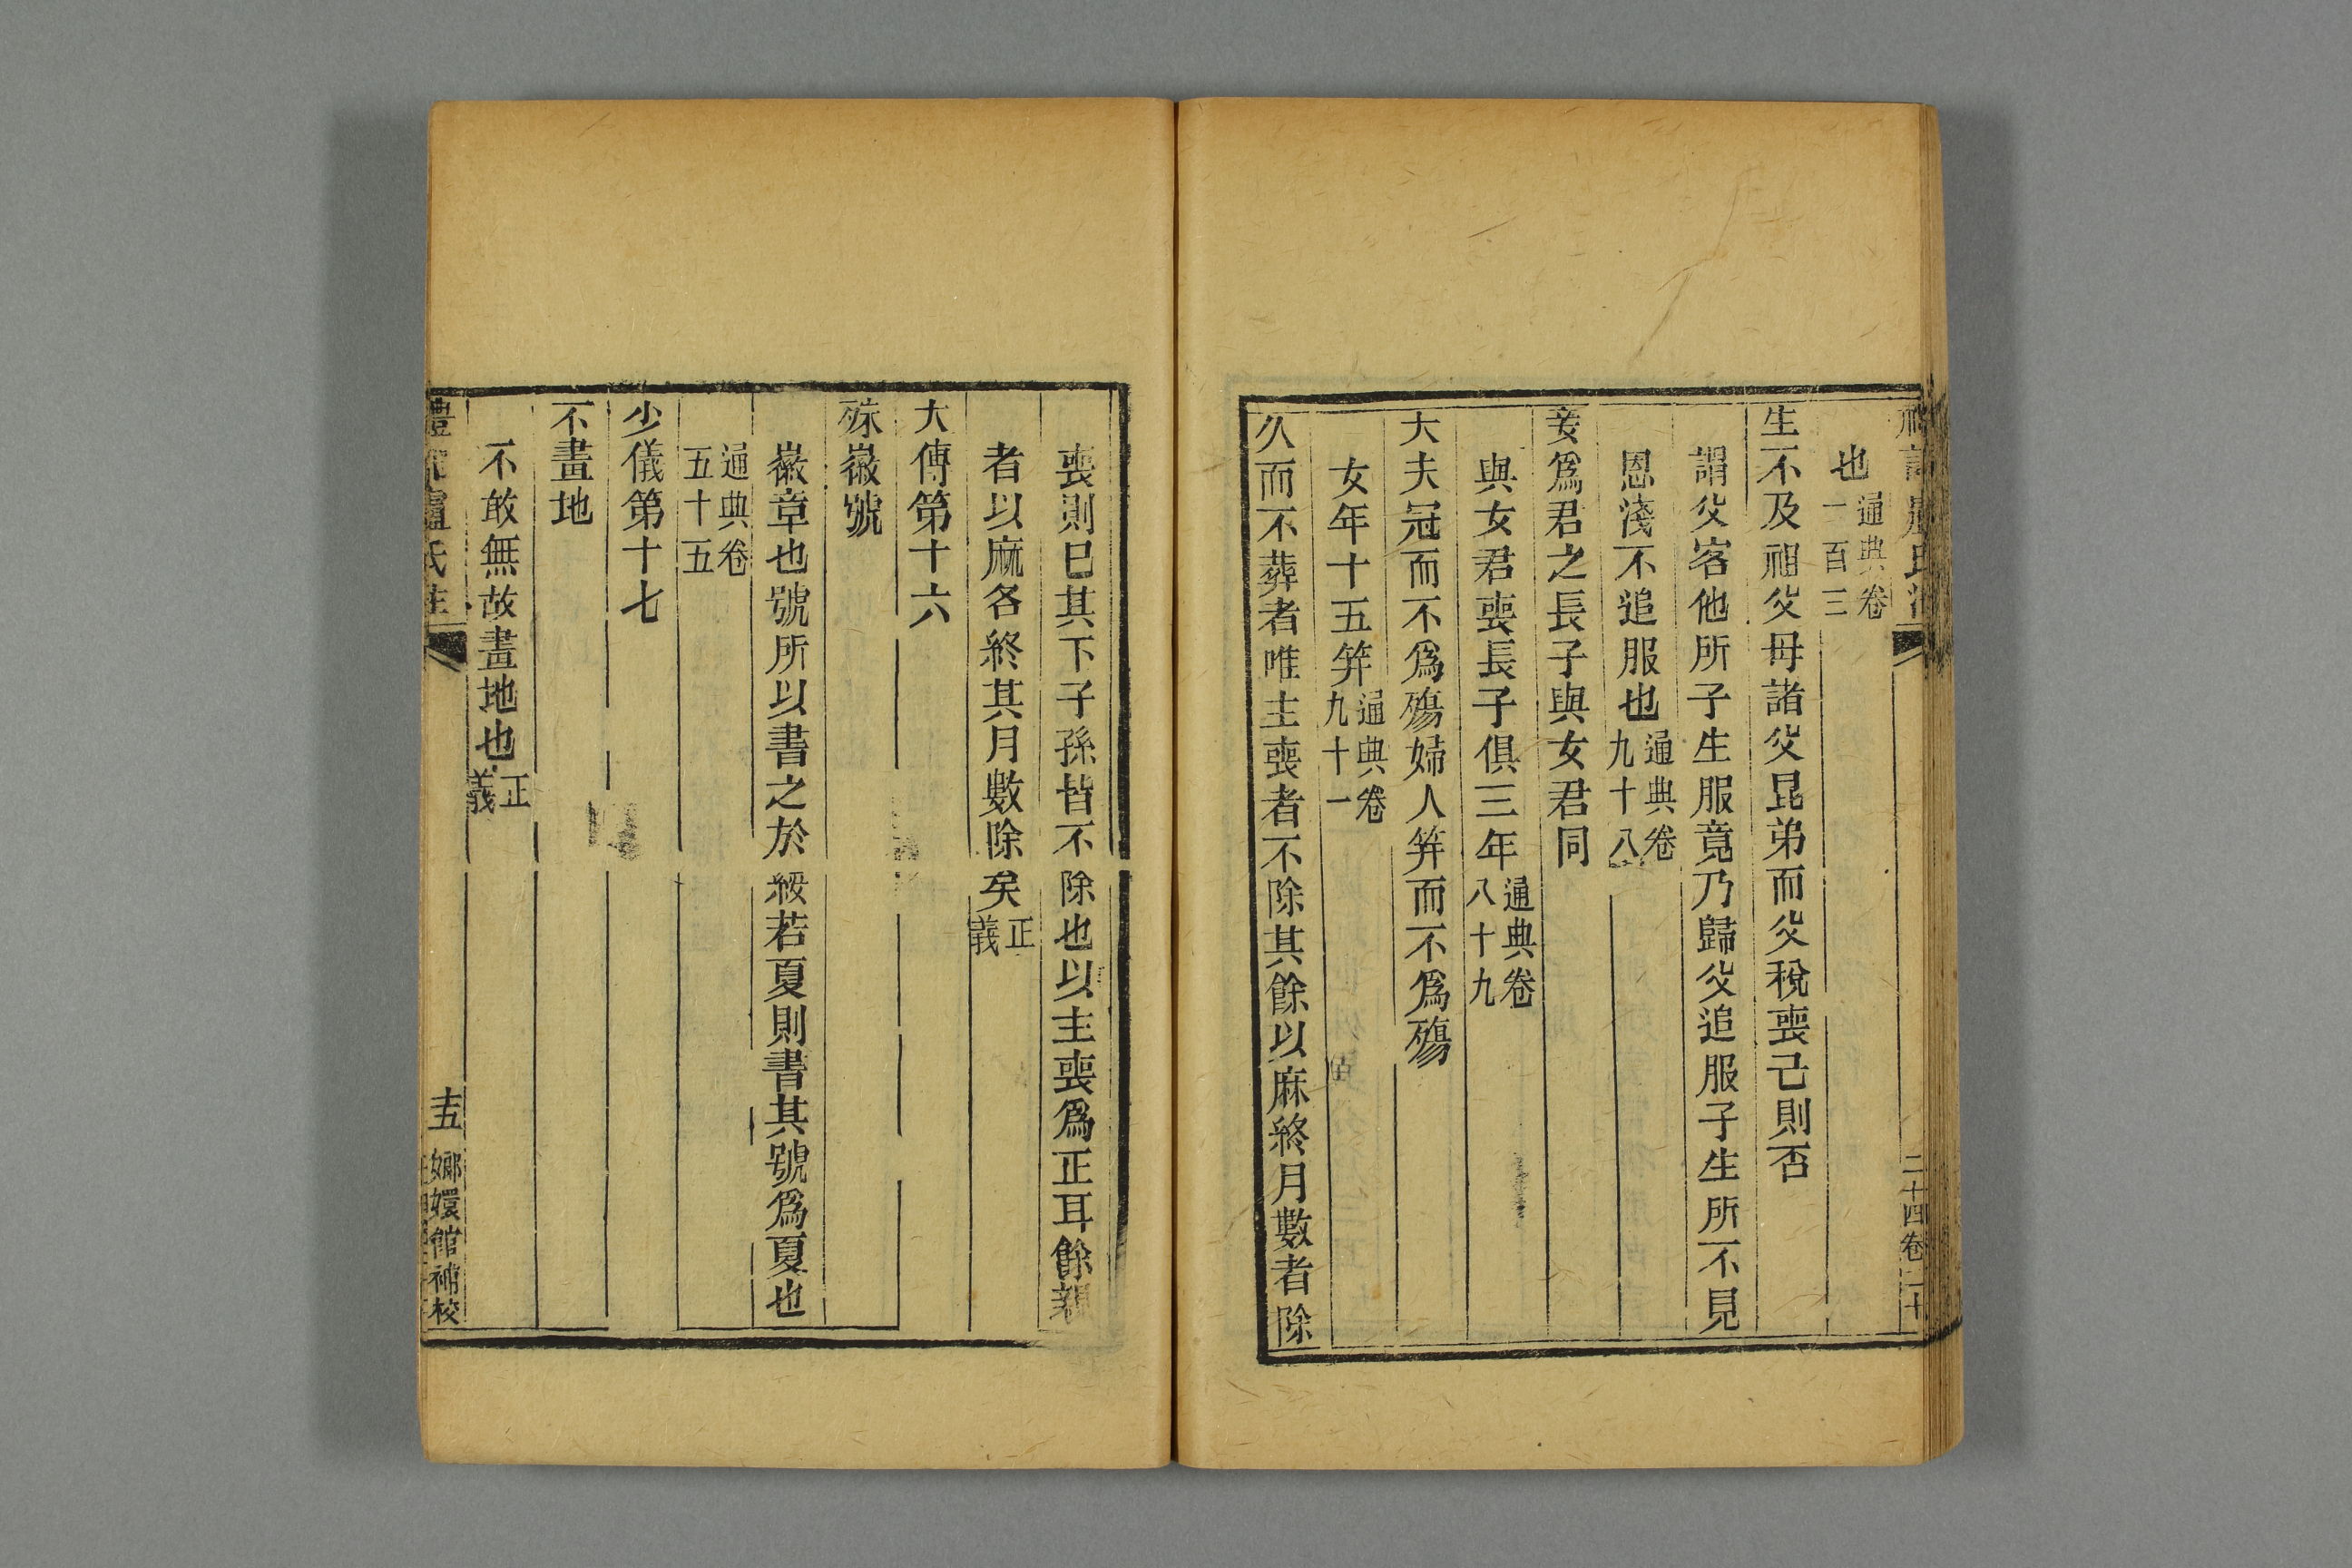 也通典卷一百三
生不及祖父母諸父昆弟而父稅喪己則否
謂父客他所子生服竟乃歸父追服子生所不見
恩淺不追服也通典卷九十八
妾爲君之長子與女君同
與女君喪長子俱三年通典卷八十九
大夫冠而不爲殤婦人笄而不爲殤
女年十五笄通典卷九十一
久而不葬者唯主喪者不除其餘以麻終月數者除
喪則已其下子孫皆不除也以主喪爲正耳餘親
者以麻各終其月數除矣正義
大傳第十六
殊徽號
徽章也號所以書之於綏若夏則書其號爲夏也
通典卷五十五
少儀第十七
不畫地
不敢無故畫地也正義
禮記盧氏注 十五 嫏嬛館補校